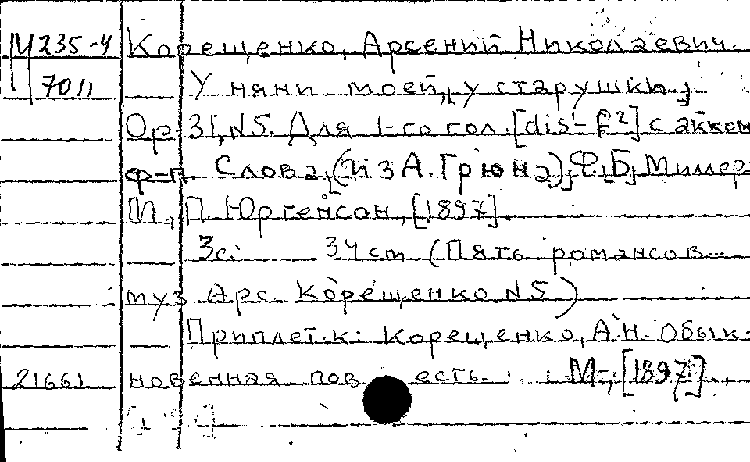 М 235-4 Корещенко, Арсений Николаевич.
7011 У няни моей, у старушки;
Op. 31, N5. Для 1-го гол. [dis-f²] с аккем
ф-п. Слова, (Из А. Грюна), Ф. Б. Миллер
М., П. Юргенсон, [1897].
3с. 34 cm (Пять романсов...
муз Арс. Корещенко N5)
Приплет. к: Корещенко, А.Н. Обык-
21661 новенная пов есть. М., [1897].